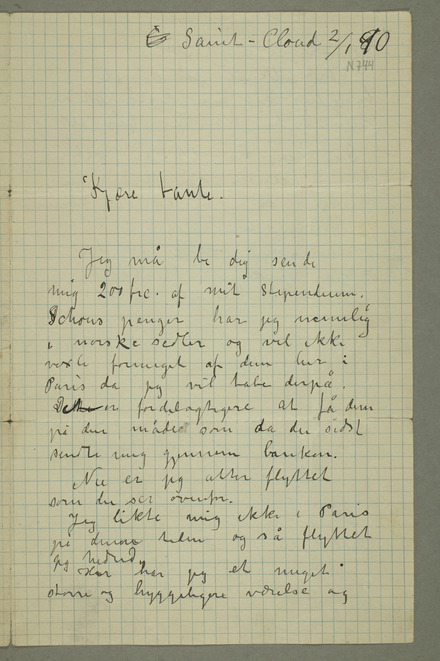 Saint-Cloud 2/1 90
N 744
Kjære tante.
Jeg må be dig sende
mig 200 frc. af mit stipendium.
Schous penger har jeg nemlig
i norske sedler og vil ikke
vexle formeget af dem her i
Paris da jeg vil tabe derpå.
Det er fordelagtigere at få dem
på den måde som da du sidst
sendte mig gjennem banken.
Nu er jeg atter flyttet
som du ser ovenfor.
Jeg likte mig ikke i Paris
på denne tiden og så flyttet
jeg herud.
Her har jeg et meget
større og hyggeligere værelse og